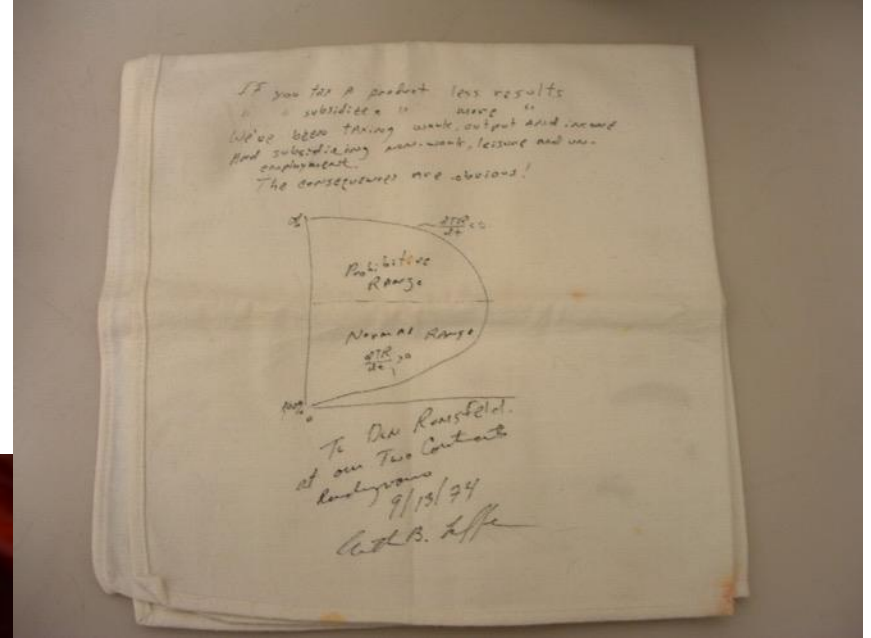 If you tax a product less results
" " subsidize a " more "
We've been taxing work, output and income
and subsidizing non-work, leisure and un-
employment.
The consequences are obvious!
dTR
dt
Prohibitive
Range
Normal Range
dTR
dt >0
0
To Don Rumsfeld.
at our Two Continents
Rendezvous
9/13/74
Arthur B. Laffer